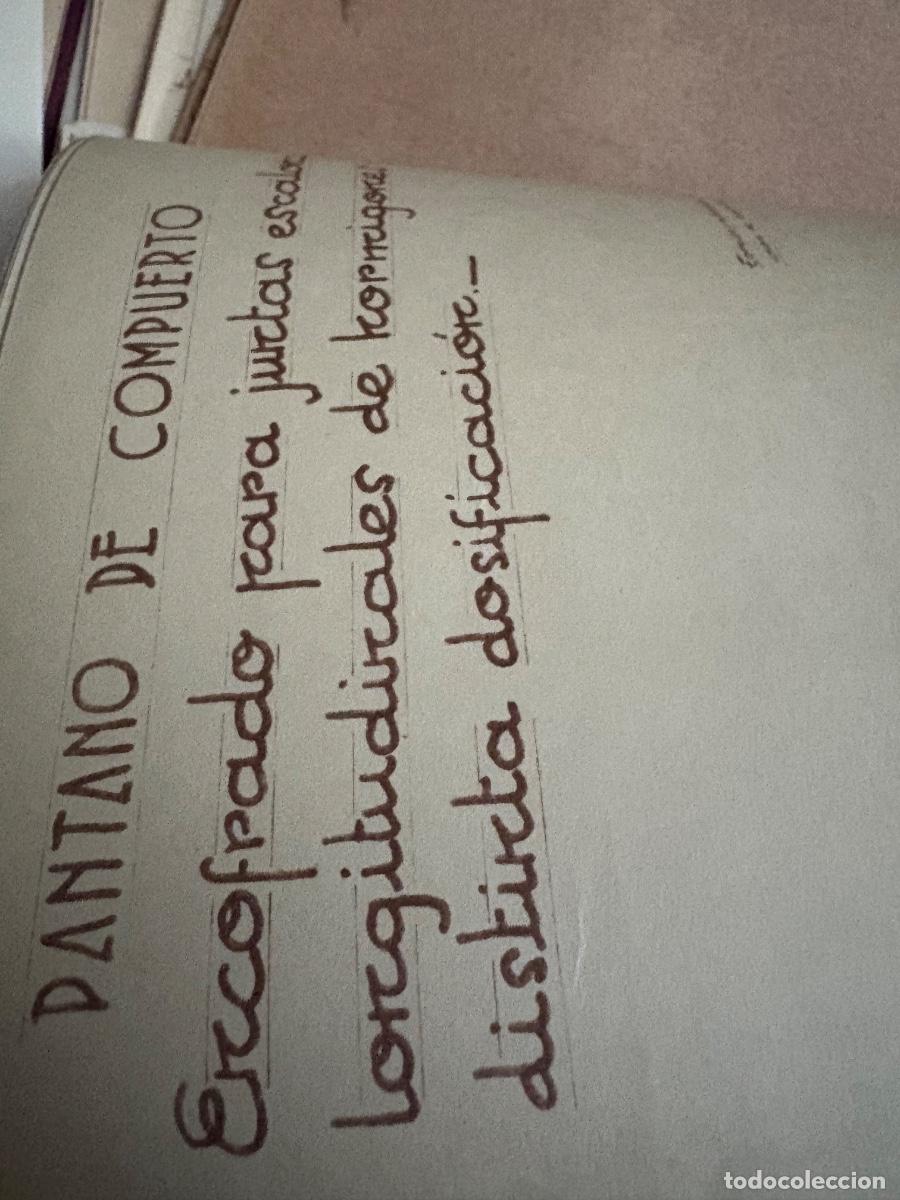 PANTANO DE COMPUERTO
Encofrado para juntas
longitudinales de hormigone
distinta dosificación.-
todocoleccion